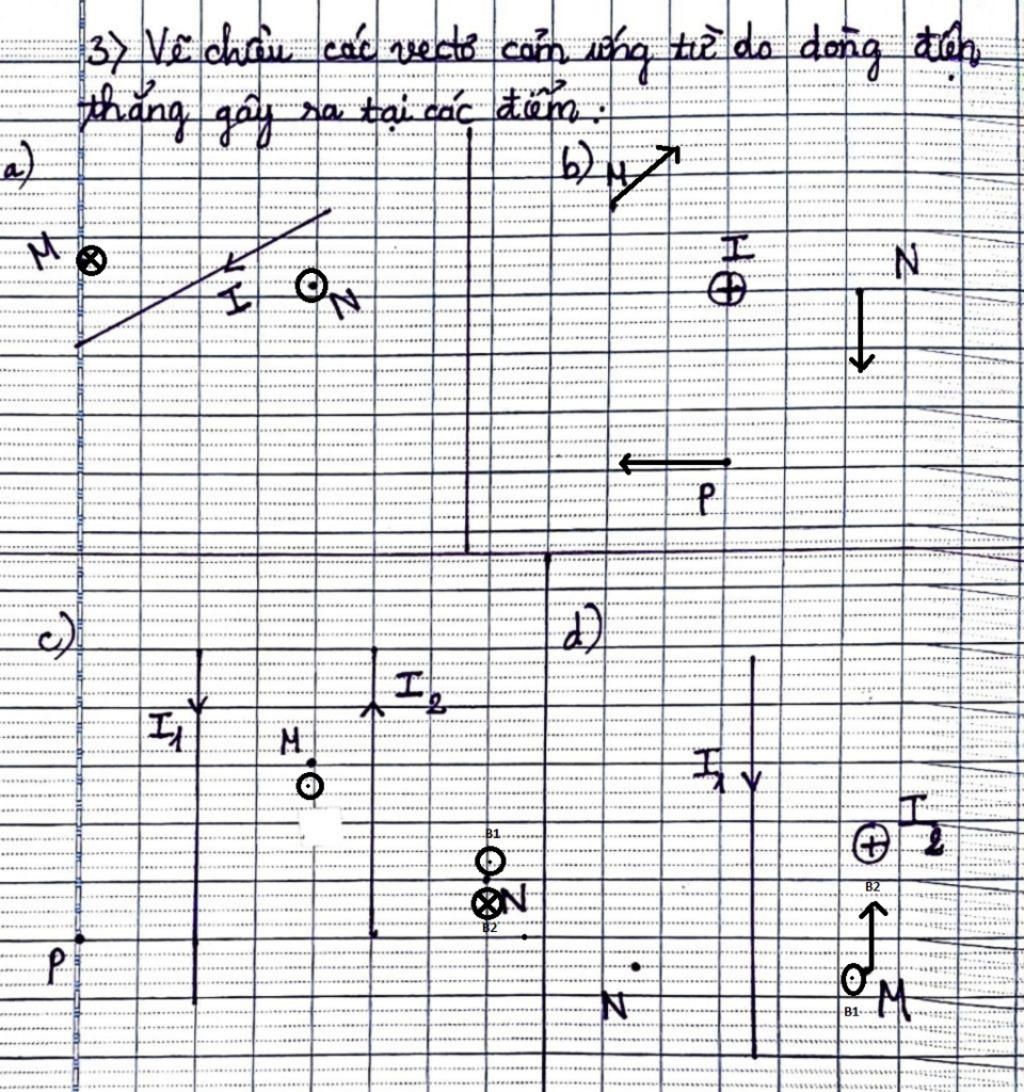 3) Vẽ chiều các vectơ cảm ứng từ do dòng điện
thẳng gây ra tại các điểm :
a)
M
I
N
b)
M
I
N
P
c)
I1
I2
M
B1
N
B2
P
d)
I1
I2
B2
N
B1
M